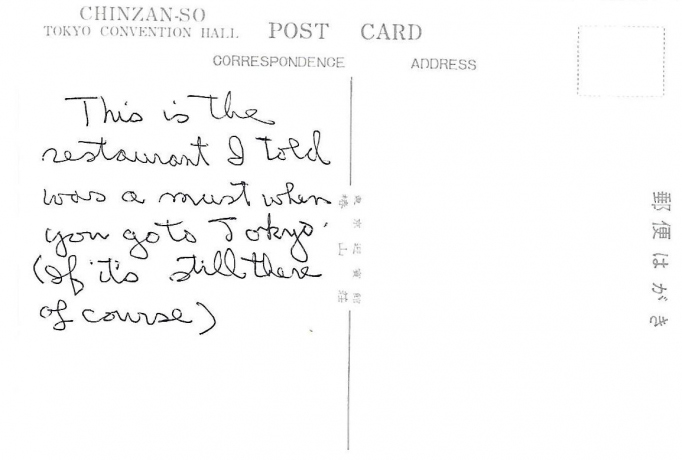 CHINZAN-SO
TOKYO CONVENTION HALL
POST CARD
CORRESPONDENCE
ADDRESS
This is the
restaurant I told
was a must when
you go to Tokyo.
(If it's still there
of course)
椿山荘
郵便はがき